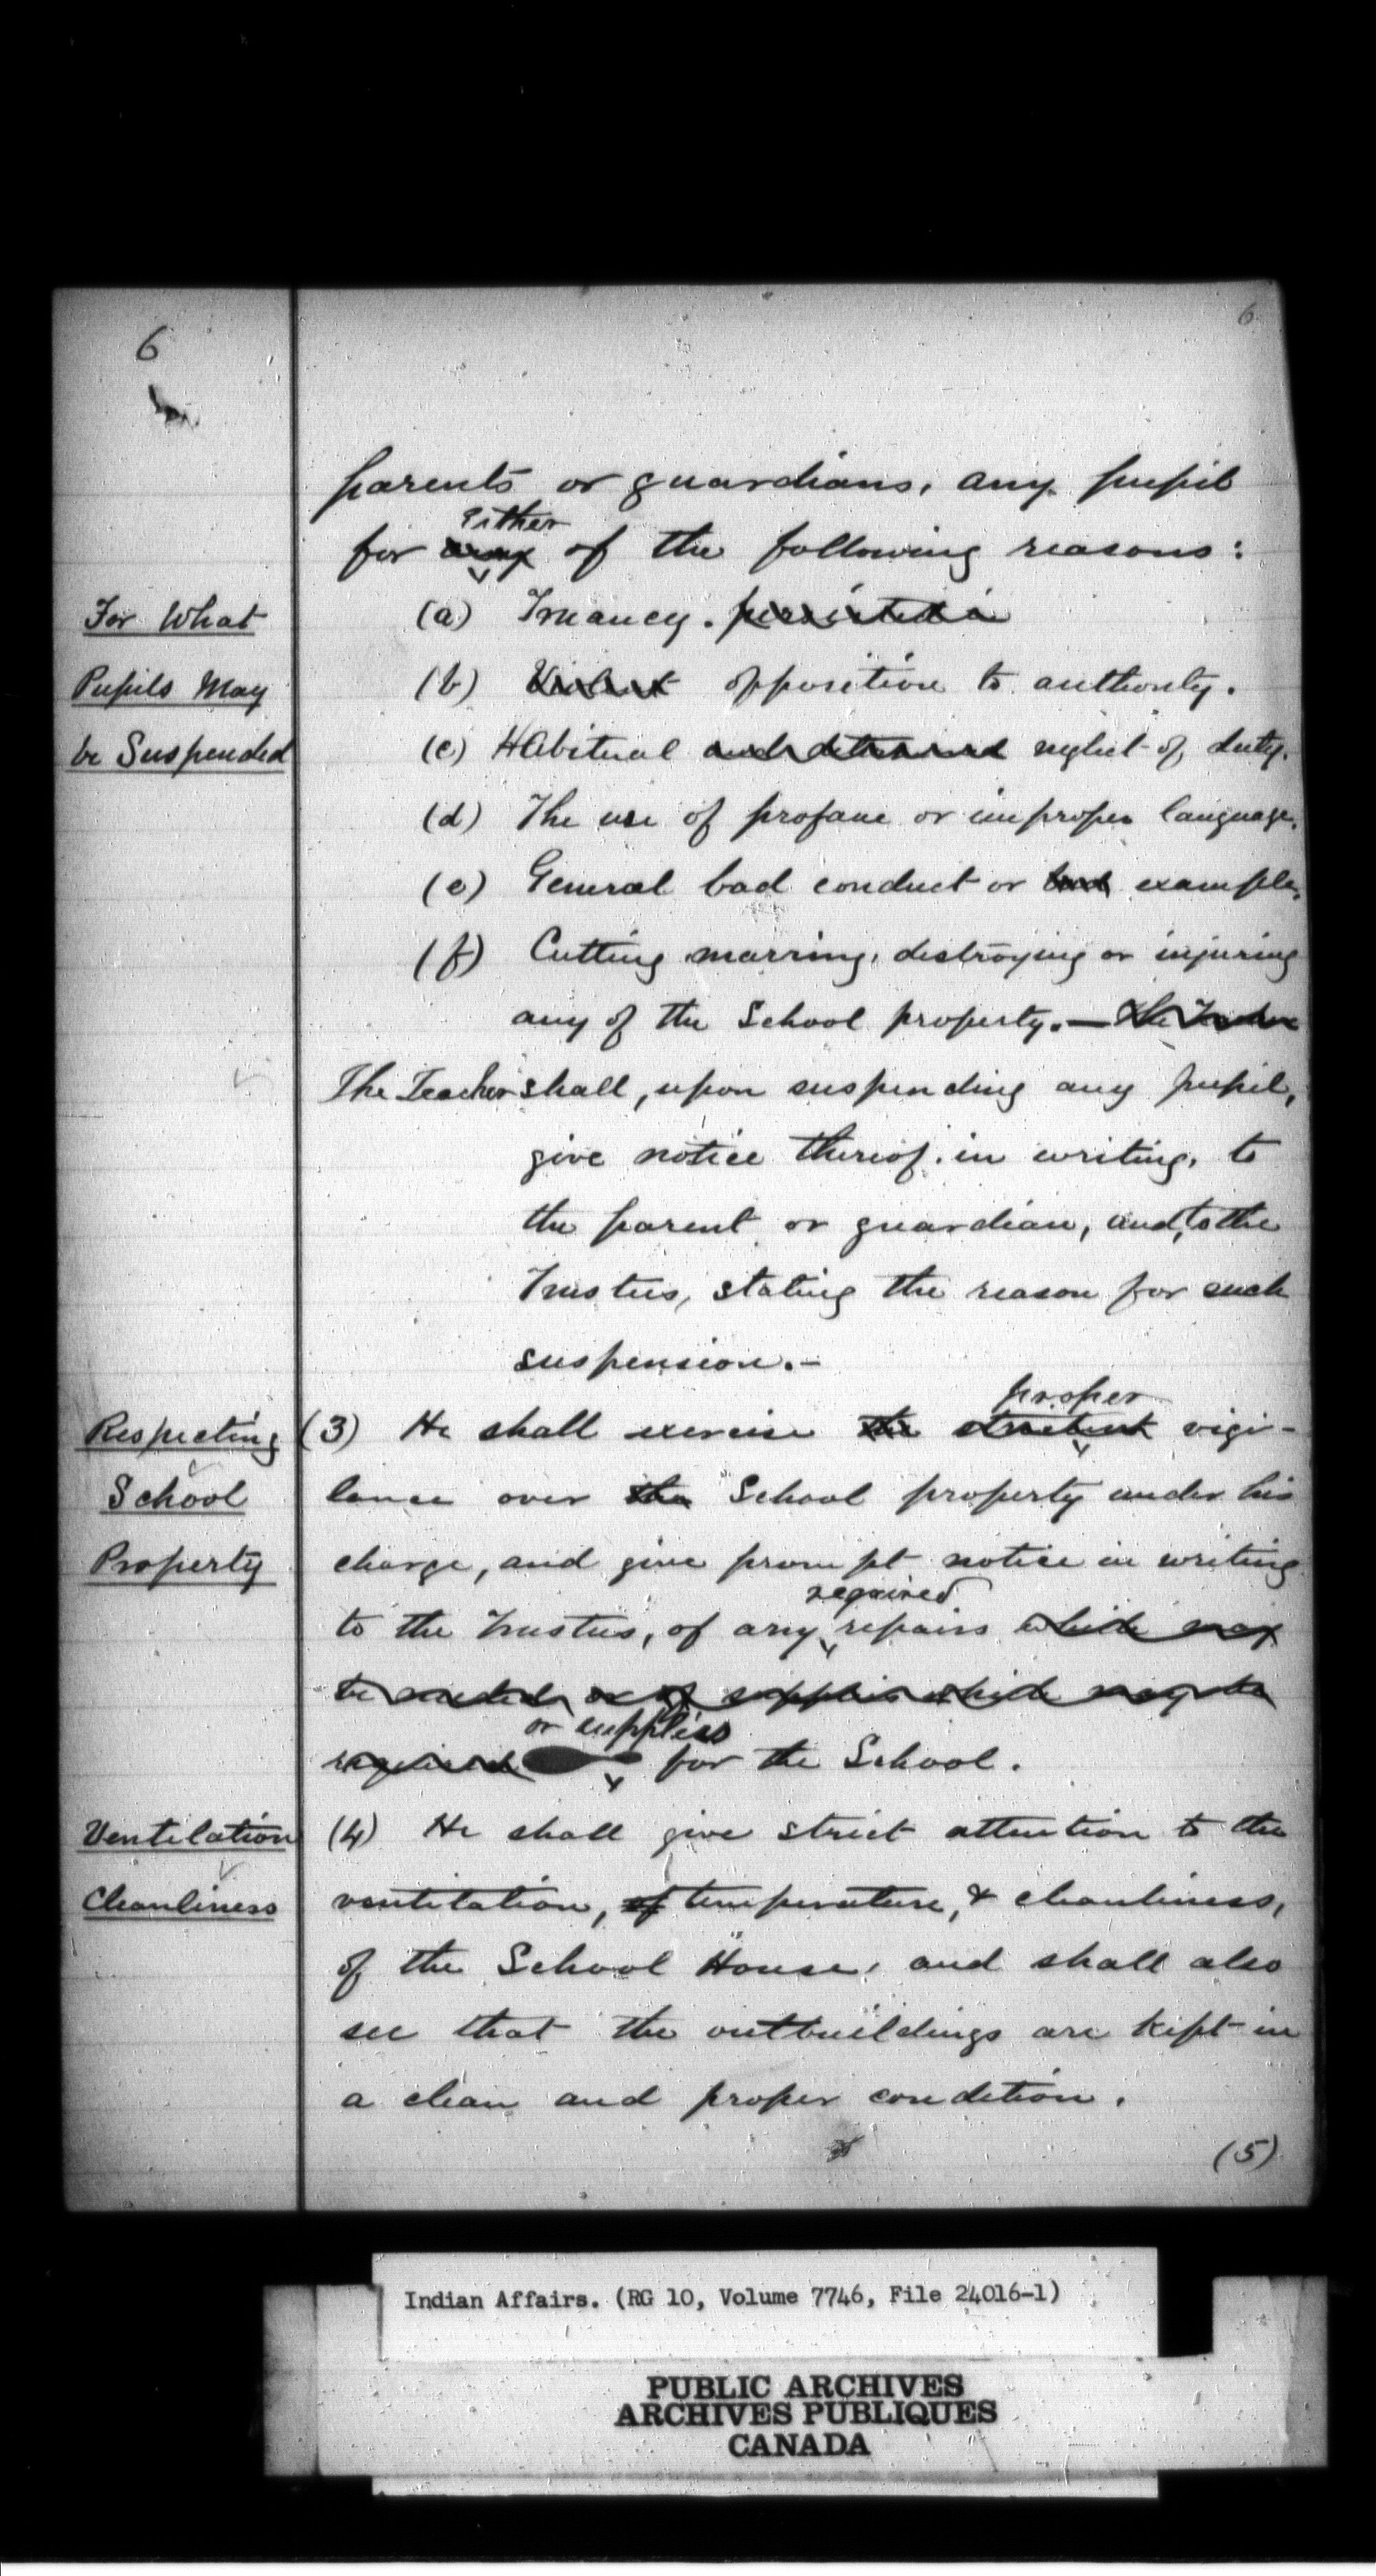 6
6
parents or guardians, any pupil
either
for any of the following reasons:
For What
(a) Truancy. persisted in
Pupils May
(b) Violent opposition to authority.
be Suspended
(c) Habitual and determined neglect of duty.
(d) The use of profane or improper language.
(e) General bad conduct or bad example.
(f) Cutting, marring, destroying or injuring
any of the School property. — The Teacher
The Teacher shall, upon suspending any pupil,
give notice thereof, in writing, to
the parent or guardian, and, to the
Trustees, stating the reason for such
suspension.-
proper
Respecting
(3) He shall exercise the strictest vigi-
School
lance over the School property under his
Property
charge, and give prompt notice in writing
required
to the Trustees, of any repairs which may
be needed, or of supplies which may be
or supplies
required for the School.
Ventilation
(4) He shall give strict attention to the
Cleanliness
ventilation, of temperature, & cleanliness,
of the School House, and shall also
see that the outbuildings are kept in
a clean and proper condition.
(5)
Indian Affairs. (RG 10, Volume 7746, File 24016-1)
PUBLIC ARCHIVES
ARCHIVES PUBLIQUES
CANADA